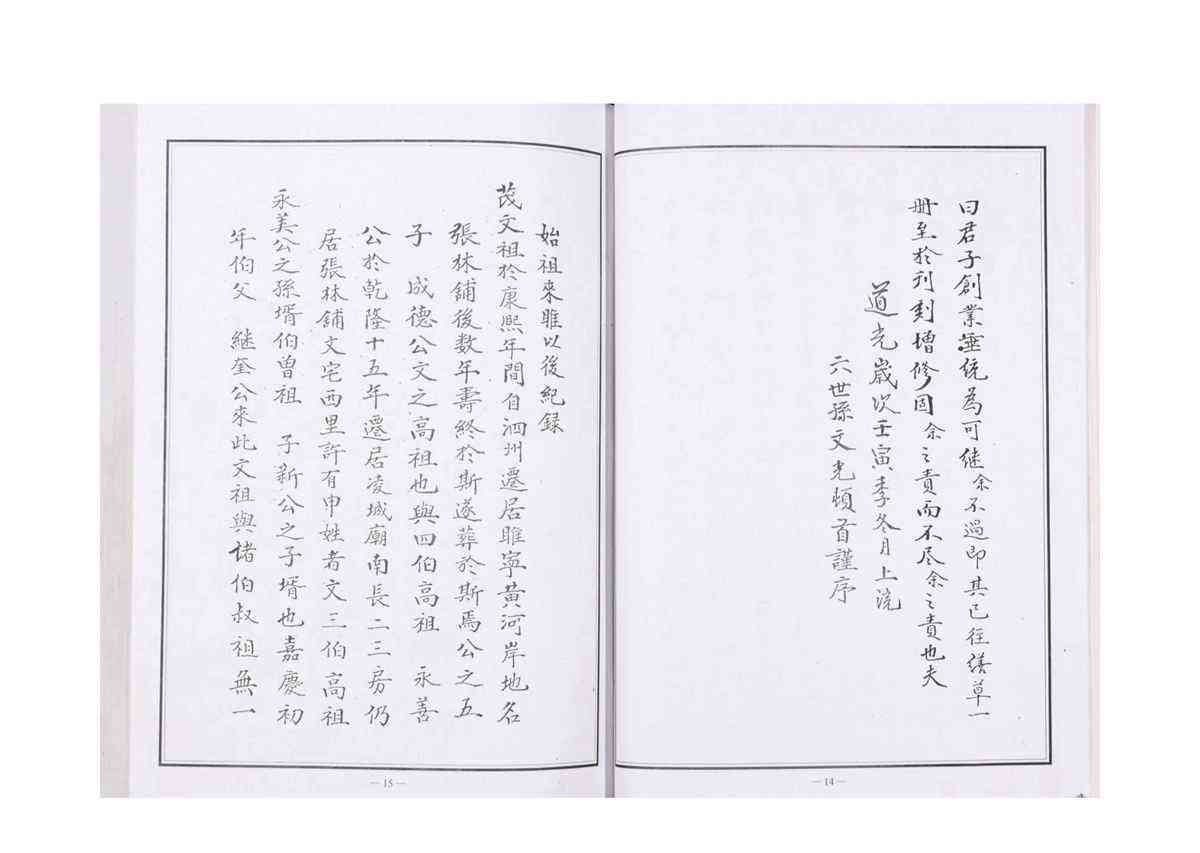 曰君子創業垂統為可继余不過即其已往繕草一
册至於刋刻增修固余之責而不尽余之責也夫
道光歲次壬寅季冬月上浣
六世孫文光頓首謹序
—14—
始祖來睢以後紀録
茂文祖於康熙年間自泗州遷居睢寧黄河岸地名
張林舖後数年壽終於斯遂葬於斯焉公之五
子 成德公文之高祖也與四伯高祖 永善
公於乾隆十五年遷居凌城廟南長二三房仍
居張林舖文宅西里許有申姓者文三伯高祖
永美公之孫壻伯曽祖 子新公之子壻也嘉慶初
年伯父 継奎公來此文祖與諸伯叔祖無一
—15—